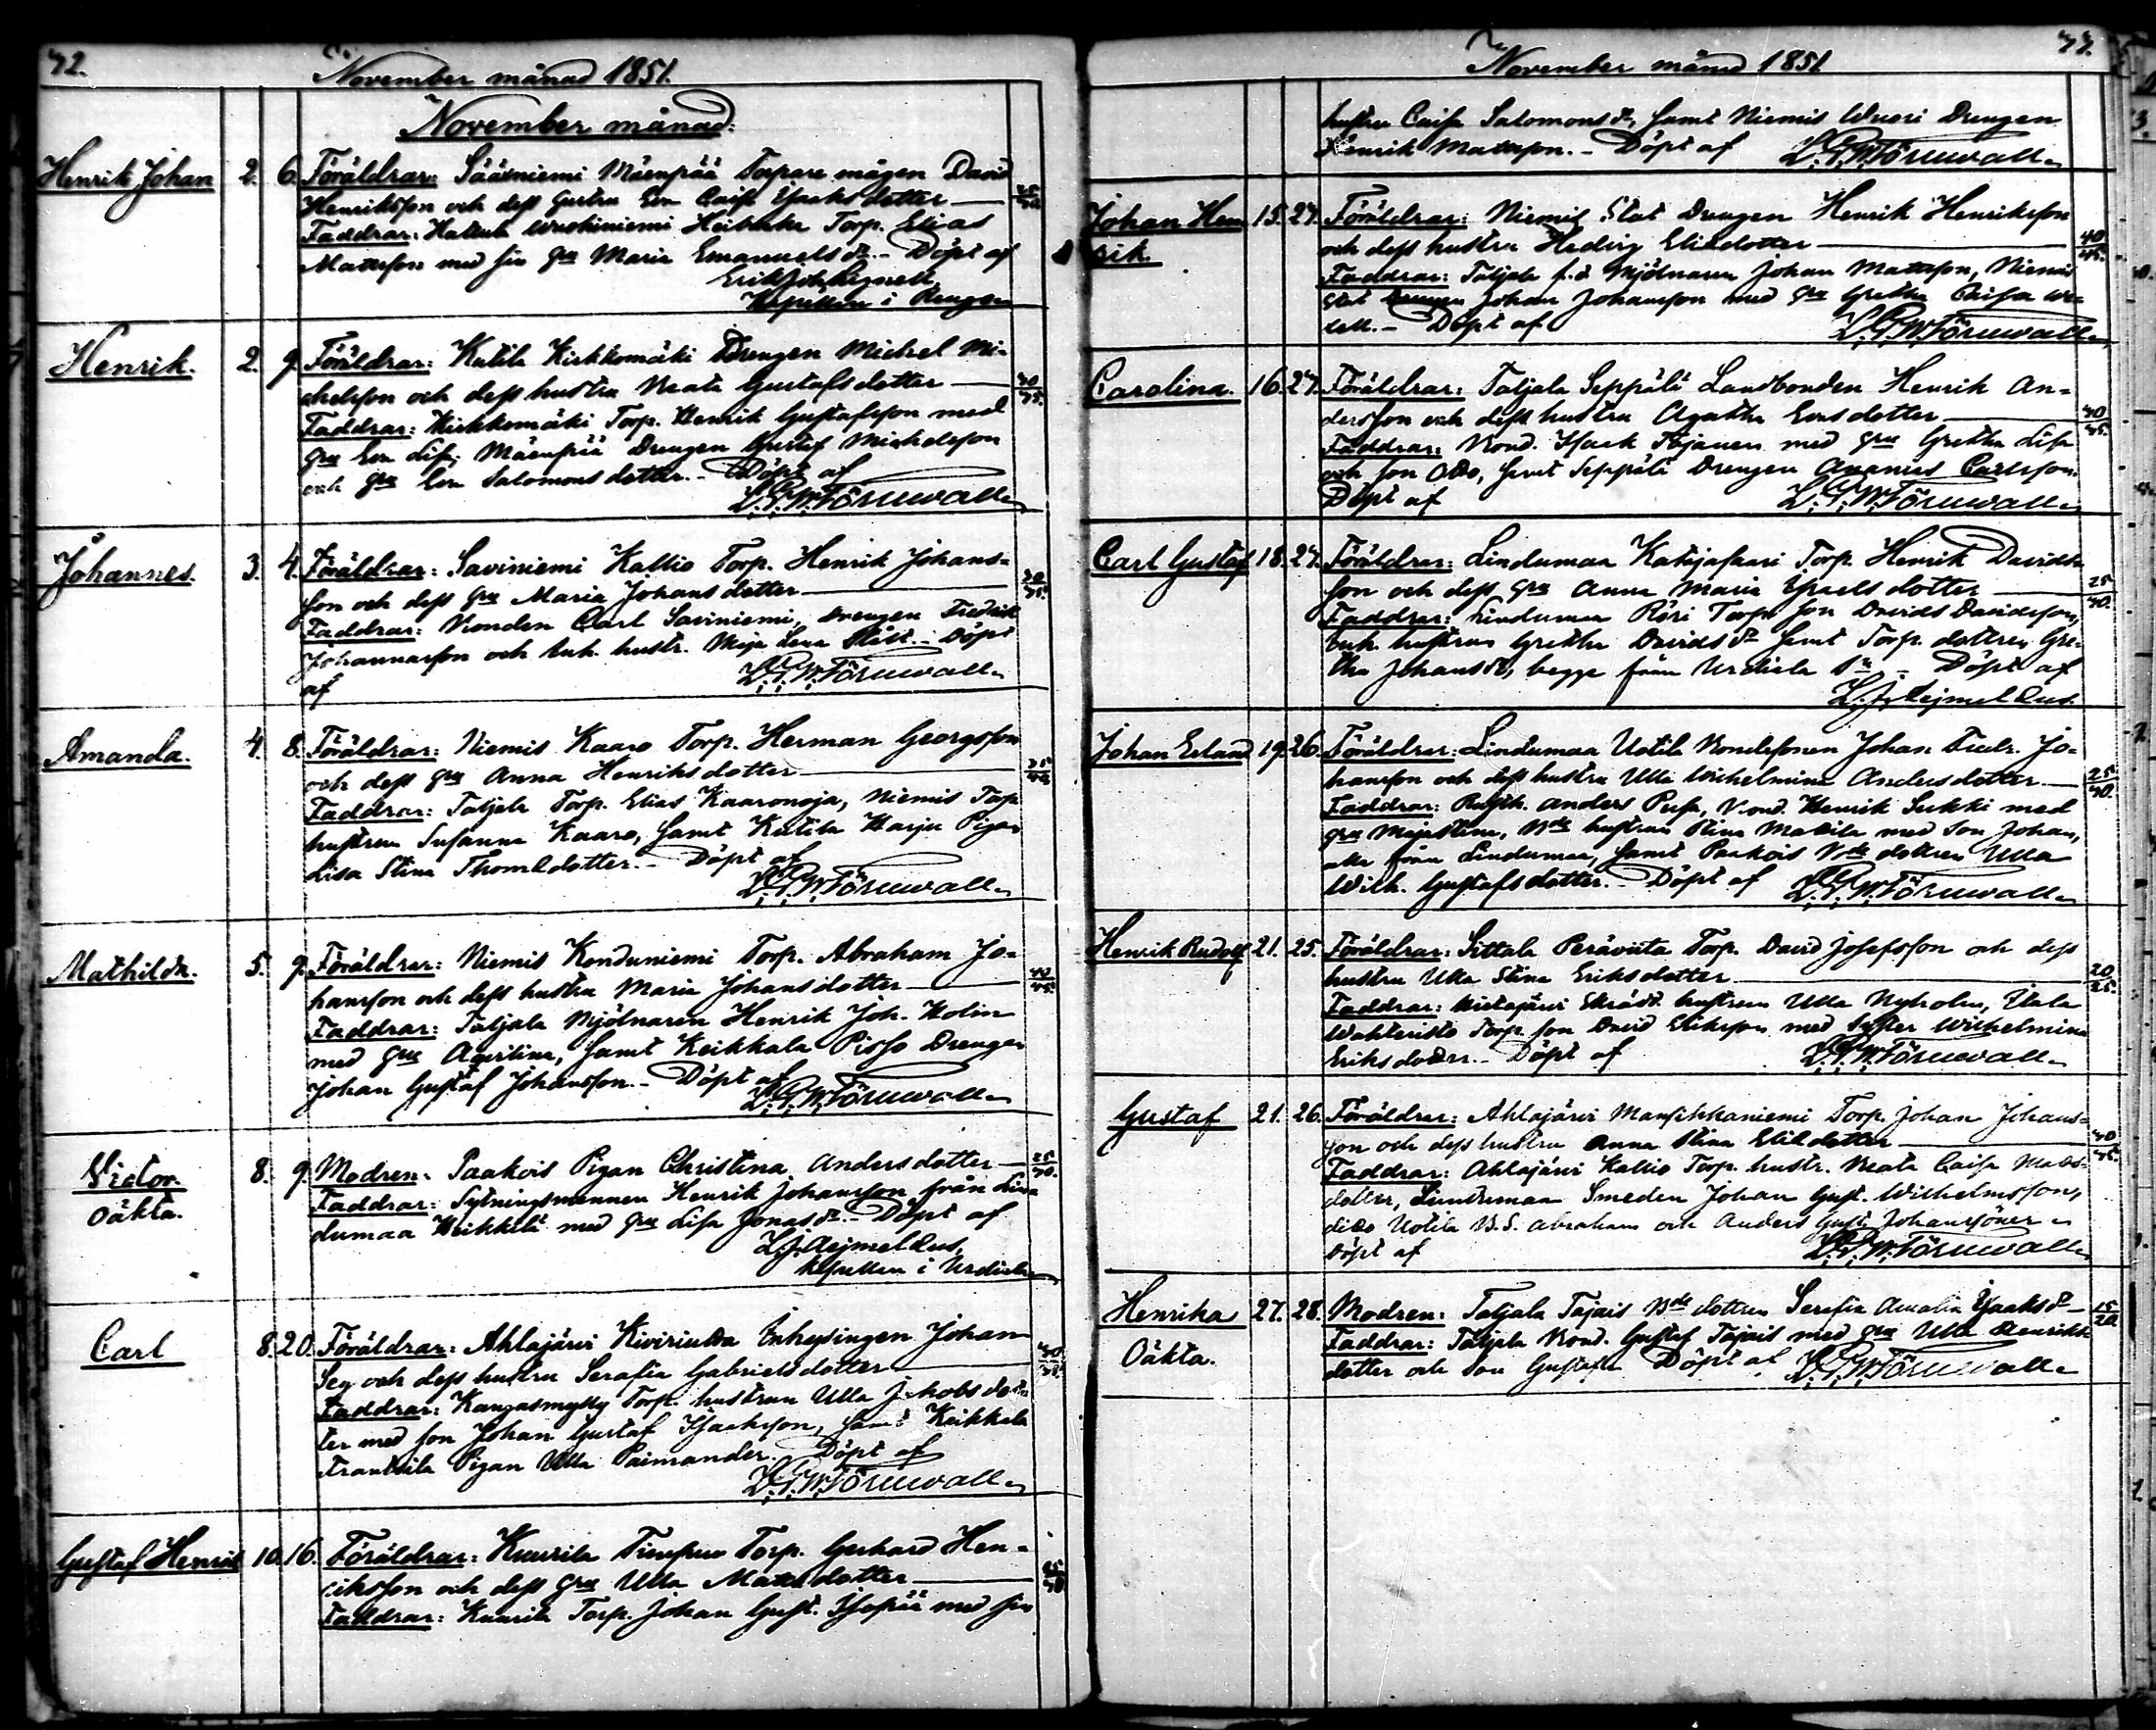 42.
November månad 1851.
November månad:
Henrik Johan 2. 6. Föräldrar: Sääxniemi Mäenpää Torpare mågen David
Henriksson och dess hustru Eva Caisa Isaksdotter 25/30
Faddrar: Wuohiniemi Torp. Elias
Mattsson med sin hru Maria Emanuelsdr. - Döpt af
Erik Joh.
Kapellan i Rengo
Henrik. 2. 9. Föräldrar: Kutila Kirkkomäki Drengen Michel Mi-
chelsson och dess hustru Beata Gustafsdotter 30/35.
Faddrar: Kirkkomäki Torp. Henrik Gustafsson med
hru Eva Lisa, Mäenpää Drengen Gustaf Michelsson
och hru Eva Salomonsdotter. - Döpt af
L.G.W. Törnwall
Johannes. 3. 4. Föräldrar: Saviniemi Kallio Torp. Henrik Johans-
son och dess hru Maria Johansdotter 30/35.
Faddrar: Bonden Carl Saviniemi, Drengen Fredrik
Johannesson och Enk. hustr. Maja Lena - Döpt
af L.G.W. Törnwall
Amanda. 4. 8. Föräldrar: Niemis Kaaro Torp. Herman Georgsson
och dess hru Anna Henriksdotter
Faddrar: Taljala Torp. Elias Kaaronoja, Niemis Torp.
hustrun Susanna Kaaro, samt Kutila Harju Pigan
Lisa Stina Thomedotter. - Döpt af
L.G.W. Törnwall
Mathilda. 5. 9. Föräldrar: Niemis Konduniemi Torp. Abraham Jo-
hansson och dess hustru Maria Johansdotter 40/45.
Faddrar: Taljala Mjölnaren Henrik Joh. Holin
med hru Agustina, samt Keikkala Drengen
Johan Gustaf Johansson. - Döpt af
L.G.W. Törnwall
Victor. 8. 9. Modren: Paakois Pigan Christina Andersdotter 25/30.
Oäkta. Faddrar: Sytningsmannen Henrik Johansson från Lin-
dumaa Heikkilä med hru Lisa Jonasdr. - Döpt af
L.J. Aejmelæus,
Kapellan i Urdiala
Carl 8. 20. Föräldrar: Ahlajärvi Inhysingen Johan
och dess hustru Serafia Gabrielsdotter
Faddrar: Kangasmylly Torp. hustrun Ulla Jakobsdot-
ter med son Johan Gustaf Isaksson, samt Keikkala
Pigan Ulla Paimander. Döpt af
L.G.W. Törnwall
Gustaf Henrik 10. 16. Föräldrar: Kuurila Torp. Gerhard Hen-
riksson och dess hru Ulla Mattsdotter
Faddrar: Kuurila Torp. Johan Gust. med sin
43.
November månad 1851
hustru Caisa Salomonsdr, samt Niemis Wuori Drengen
Henrik Mattsson. - Döpt af L.G.W. Törnwall
Johan Hen- 15. 27. Föräldrar: Niemis Stat Drengen Henrik Henriksson
rik. och dess hustru Hedvig Eliedotter 40/45.
Faddrar: Taljala f.d Mjölnaren Johan Mattsson, Niemis
Stat Drengen Johan Johansson med hru Gretha Caisa
- Döpt af L.G.W. Törnwall
Carolina. 16. 27. Föräldrar: Taljala Seppälä Landbonden Henrik An-
dersson och dess hustru Agatha Evasdotter 40/45.
Faddrar: Bond. Isaak med hru Gretha Lisa
och son Otto, samt Seppälä Drengen Ananias Carlsson.
Döpt af L.G.W. Törnwall
Carl Gustaf 18. 27. Föräldrar: Lindumaa Katajasaari Torp. Henrik Davids-
son och dess hru Anna Maria Israelsdotter 25/30.
Faddrar: Lindumaa Torp. son Davids Davidsson,
Enk. hustrun Gretha Davidsdr samt Torp. dottren Gre-
tha Johansdr, begge från Urdiala Sn - Döpt af
L.J. Aejmelæus.
Johan Erland 19. 26. Föräldrar: Lindumaa Uotila Bondesonen Johan Fredr. Jo-
hansson och dess hustru Ulla Wilhelmina Andersdotter 25/30.
Faddrar: Anders Bond. Henrik med
hru Maja Stina, Bde hustrun Stina Mattila med son Johan,
alla från Lindumaa, samt Paakois Bde dottren Ulla
Wilh. Gustafsdotter. - Döpt af L.G.W. Törnwall
Henrik Rudolf 21. 25. Föräldrar: Sittala Perävieta Torp. David Josefsson och dess
hustru Ulla Stina Eriksdotter 20/25.
Faddrar: Skrädd. hustrun Ulla Nyholm,
Torp. son David Eriksson med Syster Wilhelmina
Eriksdotter. - Döpt af L.G.W. Törnwall
Gustaf 21. 26. Föräldrar: Ahlajärvi Mansikkaniemi Torp. Johan Johans-
son och dess hustru Anna Stina Eliedotter 30/35.
Faddrar: Ahlajärvi Kallio Torp. hustr. Beata Caisa Matts-
dotter, Lindumaa Smeden Johan Gust. Wilhelmsson,
dito Uotila B.S. Abraham och Anders Gust. Johanssöner
Döpt af L.G.W. Törnwall
Henrika 27. 28. Modren: Taljala Tajais Bde dottren Serafia Amalia Isaaksdr 15/20.
Oäkta. Faddrar: Taljala Bond. Gustaf Tajais med hru Ulla Henriks-
dotter och son Gustaf. Döpt af L.G.W. Törnwall